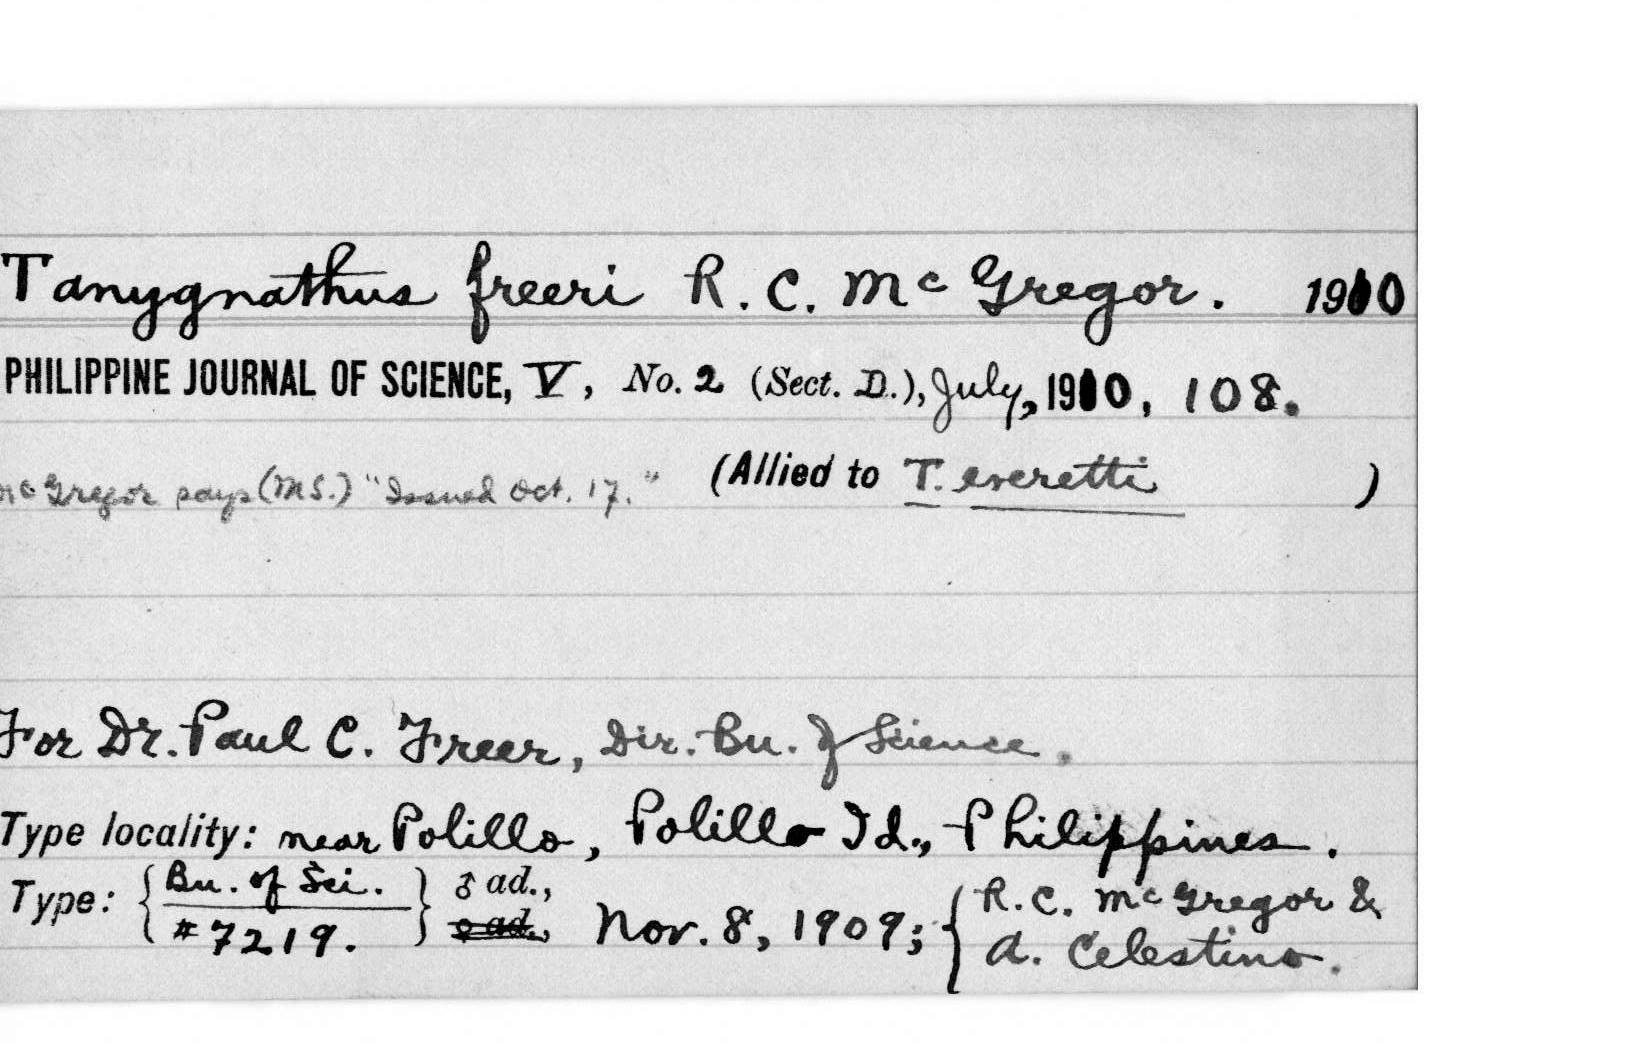 Tanygnathus freeri R. C. McGregor. 1910
PHILIPPINE JOURNAL OF SCIENCE, V, No. 2 (Sect. D.), July, 1910, 108.
McGregor says (MS.) "Issued Oct. 17." (Allied to T. everetti )
For Dr. Paul C. Freer, Dir. Bu. of Science.
Type locality: near Polillo, Polillo Id., Philippines.
Type: { Bu. of Sci. } ♂ ad., { R. C. McGregor &
#7219. ♀ ad., Nov. 8, 1909; A. Celestino.